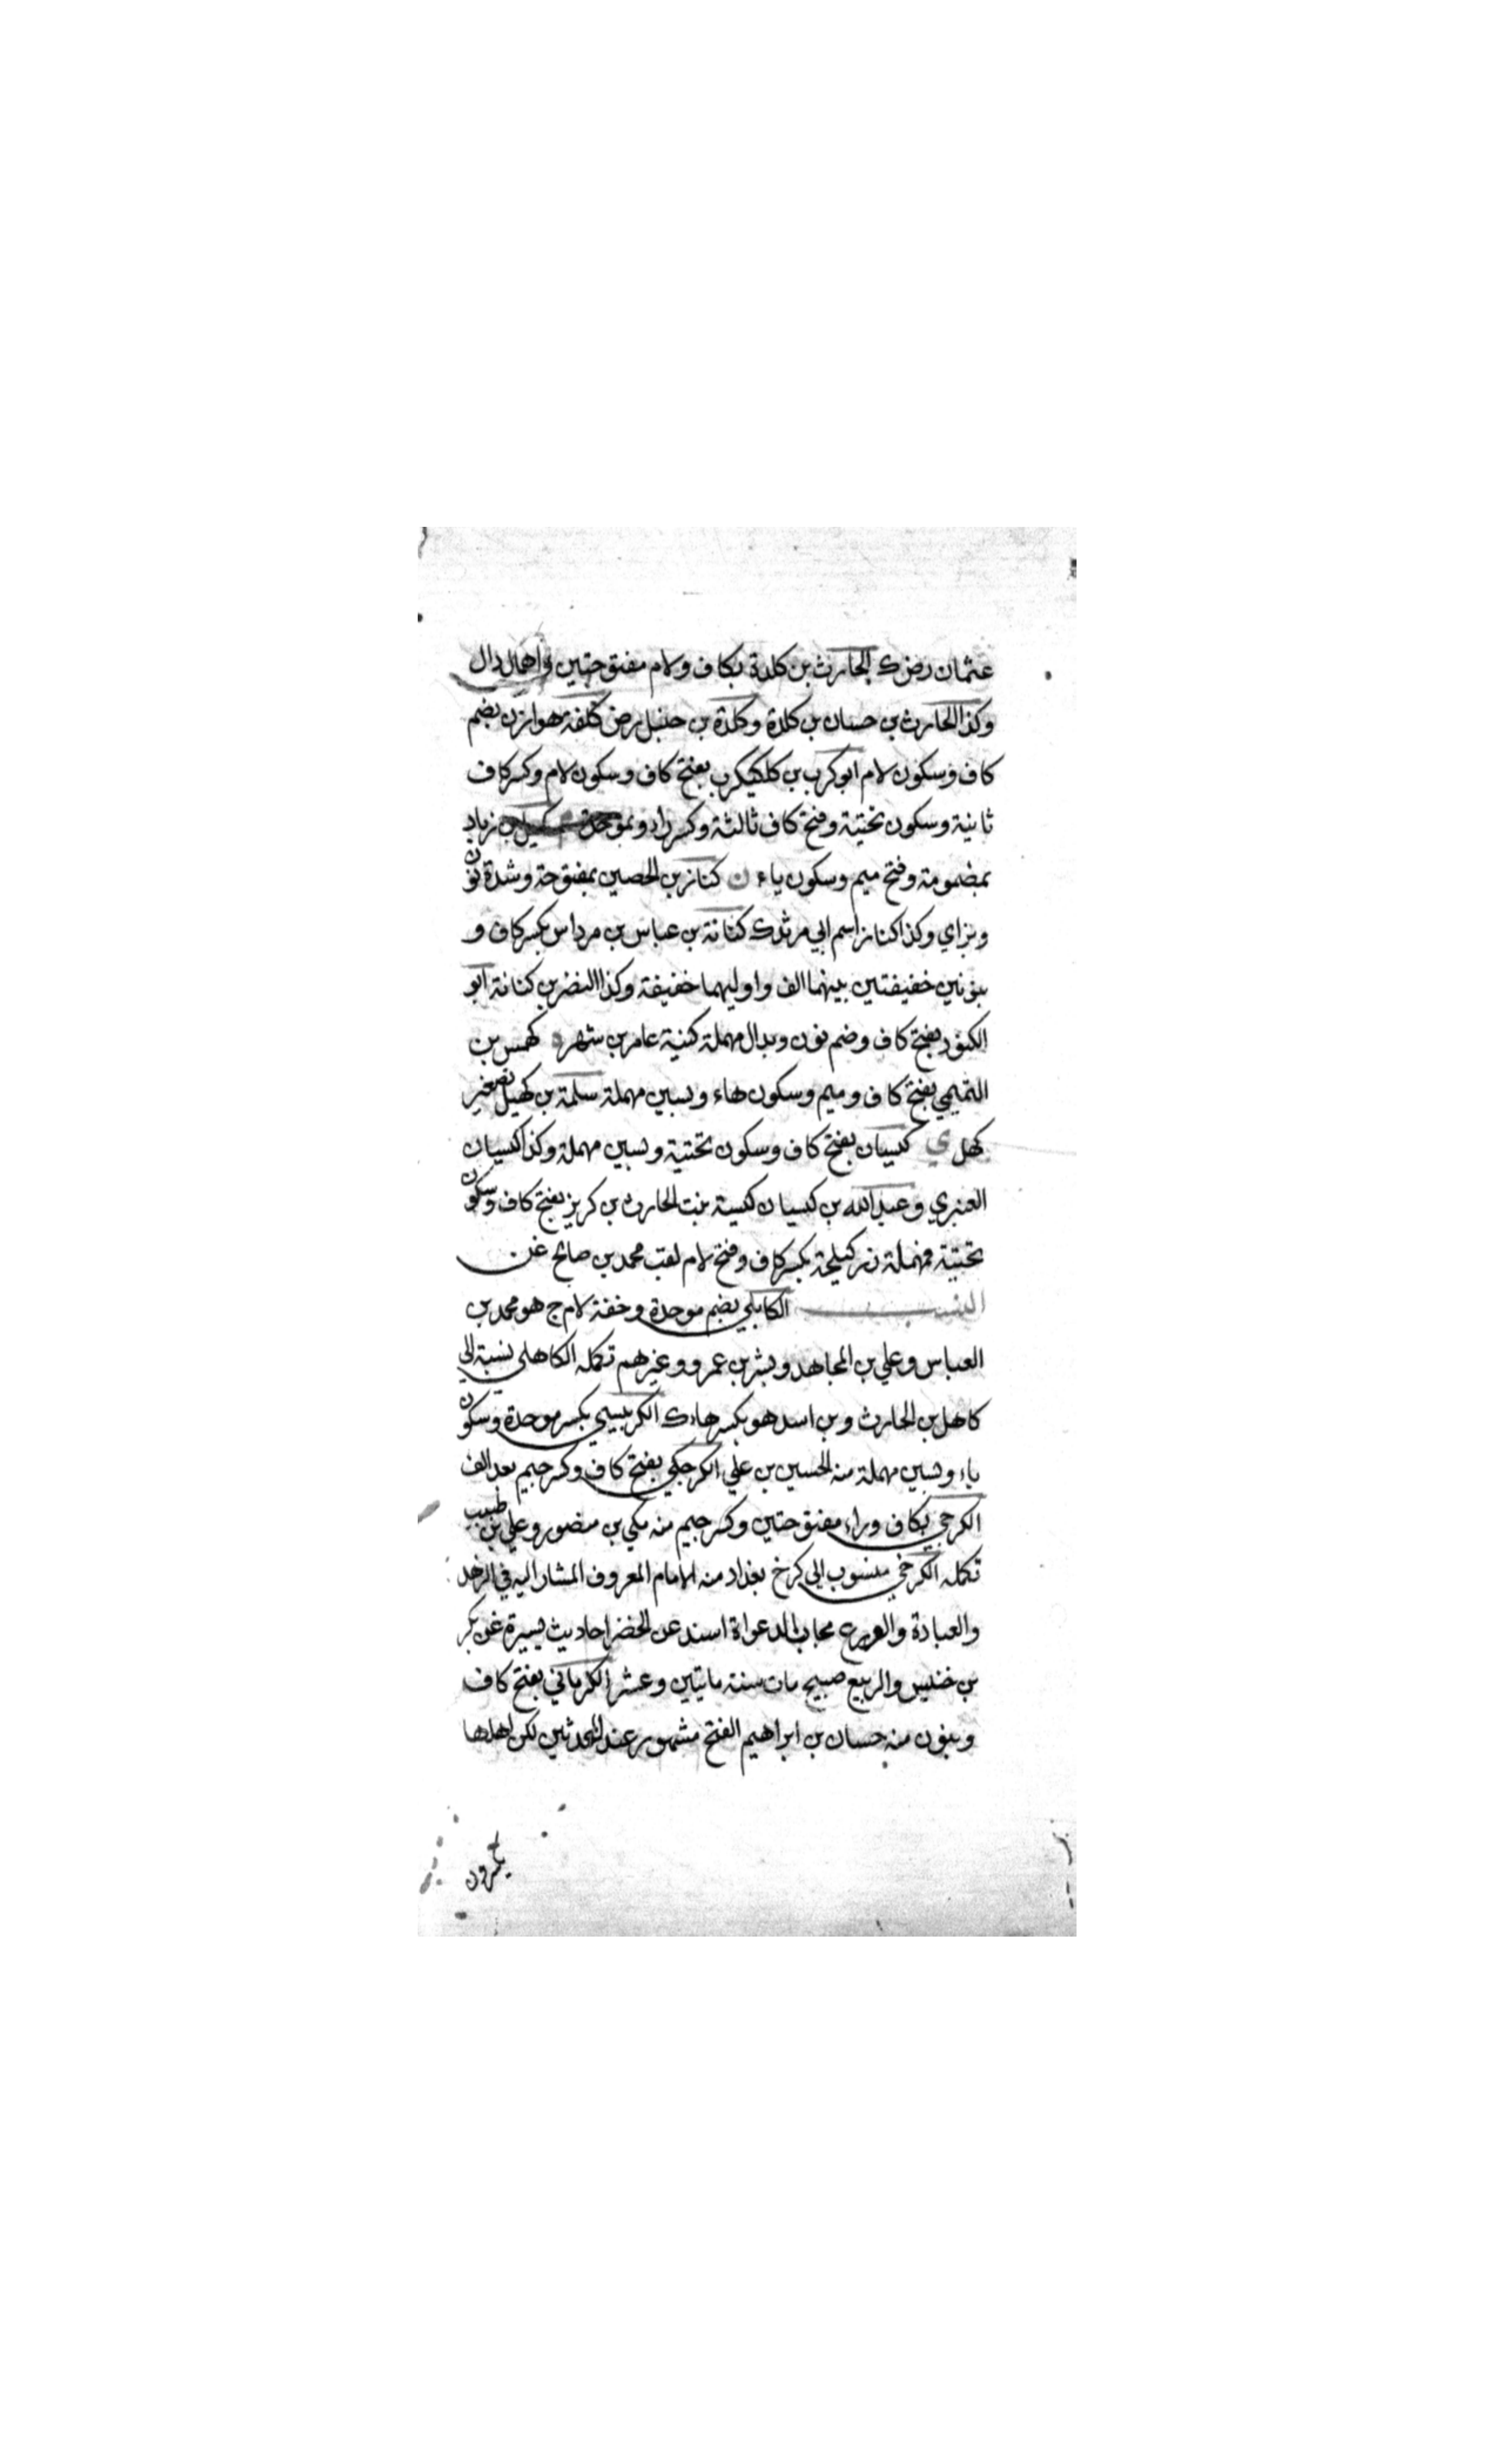 عثمان رض ك الحارث بن كلدة بكاف ولام مفتوحتين واهمال دال
وكذا الحارث بن حسان بن كلدة وكلدة بن حنبل رض كلفة هوازن بضم
كاف وسكون لام ابو كرب بن كلكيكرب بفتح كاف وسكون لام وكسر كاف
ثانية وسكون تحتية وفتح كاف ثالثة وكسر راء وبموحدة كميل بن زياد
بمضمومة وفتح ميم وسكون ياء ن كناز بن الحصين بمفتوحة وشدة نون
وبزاي وكذا كناز اسم ابي مرثد ك كنانة بن عباس بن مرداس بكسر كاف و
بنونين خفيفتين بينهما الف واوليهما خفيفة وكذا النضر بن كنانة ابو
الكنود بفتح كاف وضم نون وبدال مهملة كنية عامر بن شهر ه كهمس بن
التميمي بفتح كاف وميم وسكون هاء وبسين مهملة سلمة بن كهيل تصغير
كهل ي كيسان بفتح كاف وسكون تحتية وبسين مهملة وكذا كيسان
العنبري وعبد الله بن كيسان كيسة بنت الحارث بن كريز بفتح كاف وسكون
تحتية فمهملة زر كيلجة بكسر كاف وفتح لام لقب محمد بن صالح غن
النسب الكابلي بضم موحدة وخفة لام ج هو محمد بن
العباس وعلي بن المجاهد وبشر بن عمرو وغيرهم تكمله الكاهلي نسبة الى
كاهل بن الحارث وبن اسد هو بكسر هاء ك الكربيسي بكسر موحدة وسكون
ياء وبسين مهملة منه الحسين بن علي الكرجكي بفتح كاف وكسر جيم بعد الف
الكرجي بكاف وراء مفتوحتين وكسر جيم منه مكي بن منصور وعلي بن طبيب
تكمله الكرخي منسوب الى كرخ بغداد منه الامام المعروف المشار اليه في الزهد
والعبادة والورع مجاب الدعواة اسند عن الخضر احاديث يسيرة غن بكر
بن خنيس والربيع صبيح مات سنة مايتين وعشر الكرماني بفتح كاف
وبنون منه حسان بن ابراهيم الفتح مشهور عند المحدثين لكن اهلها